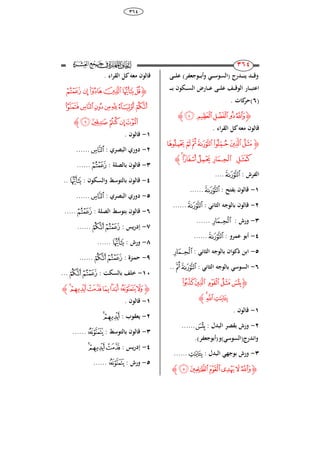 ٣٦٤
وقـد ينـدرج (السوسـي وأبـوجعفر) علـى
اعتبـار الوقـف علـى عـارض السـكون بـ
(٦) حركات .
﴿ وَٱللَّهُ ذُو ٱلۡفَضۡلِ ٱلۡعَظِيمِ ﴾
قالون معه كل القراء .
﴿ مَثَلُ ٱلَّذِينَ حُمِّلُواْ ٱلتَّوۡرَىٰةَ ثُمَّ لَمۡ يَحۡمِلُوهَا
كَمَثَلِ ٱلۡحِمَارِ يَحۡمِلُ أَسۡفَارَۢا ﴾
الفرش : ٱلتَّوۡرَىٰةَ ....
١- قالون .
٢- قالون بفتح : ٱلتَّوۡرَىٰةَ ......
٢- قالون بالوجه الثاني : ٱلتَّوۡرَىٰةَ ......
٣- ورش : ٱلۡحِمَارِ ......
٤- أبو عمرو : ٱلتَّوۡرَىٰةَ ......
٥- ابن ذكوان بالوجه الثاني : ٱلۡحِمَارِ ......
٦- السوسي بالوجه الثاني : ٱلتَّوۡرَىٰةَ ثُمَّ ..
﴿ بِئۡسَ مَثَلُ ٱلۡقَوۡمِ ٱلَّذِينَ كَذَّبُواْ
بِـَٔايَٰتِ ٱللَّهِۚ ﴾
١- قالون .
٢- ورش بقصر البدل : بِئۡسَ ......
واندرج(السوسي)و(أبوجعفر).
٣- ورش بوجهي البدل : بِـَٔايَٰتِ ......
﴿ وَٱللَّهُ لَا يَهۡدِي ٱلۡقَوۡمَ ٱلظَّٰلِمِينَ ﴾
قالون معه كل القراء .
﴿ قُلۡ يَٰٓأَيُّهَا ٱلَّذِينَ هَادُوٓاْ إِن زَعَمۡتُمۡ
أَنَّكُمۡ أَوۡلِيَآءُ لِلَّهِ مِن دُونِ ٱلنَّاسِ فَتَمَنَّوُاْ
ٱلۡمَوۡتَ إِن كُنتُمۡ صَٰدِقِينَ ﴾
١- قالون .
٢- دوري البصري : ٱلنَّاسِ ......
٣- قالون بالصلة : زَعَمۡتُمۡ ......
٤- قالون بالتوسط والسكون : يَٰٓأَيُّهَا ..
٥- دوري البصري : ٱلنَّاسِ ......
٦- قالون بتوسط الصلة : زَعَمۡتُمۡ ......
٧- إدريس : زَعَمۡتُمۡ أَنَّكُمۡ ......
٨- ورش : يَٰٓأَيُّهَا ......
٩- حمزة : زَعَمۡتُمۡ أَنَّكُمۡ ......
١٠- خلف بالسكت : زَعَمۡتُمۡ أَنَّكُمۡ ...
﴿ وَلَا يَتَمَنَّوۡنَهُۥٓ أَبَدَۢا بِمَا قَدَّمَتۡ أَيۡدِيهِمۡۚ ﴾
١- قالون .
٢- يعقوب : أَيۡدِيهِمۡ
٣- قالون بالتوسط : يَتَمَنَّوۡنَهُۥٓ ......
٤- إدريس : قَدَّمَتۡ أَيۡدِيهِمۡ
٥- ورش : يَتَمَنَّوۡنَهُۥٓ ......
٣٦٤